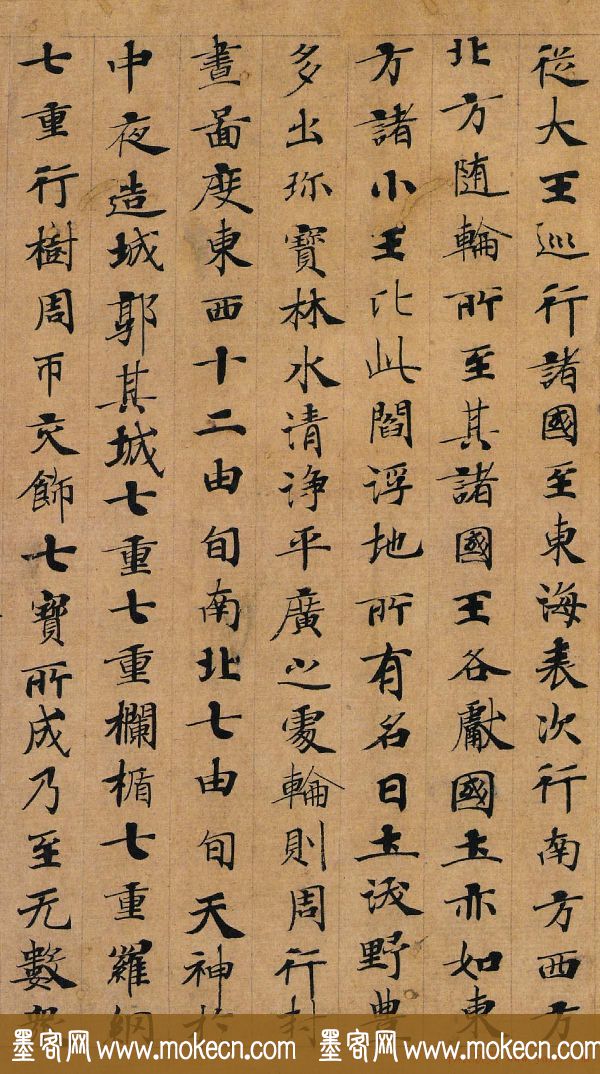 從大王巡行諸國至東海表次行南方西方
北方随輪所至其諸國王各獻國土亦如東
方諸小王比此閻浮地所有名曰土沃野豊
多出珎寶林水清淨平廣之處輪則周行封
畫啚度東西十二由旬南北七由旬天神於
中夜造城郭其城七重七重欄楯七重羅網
七重行樹周帀交飾七寶所成乃至无數
墨客网 www.mokecn.com 墨客网 www.mokecn.com